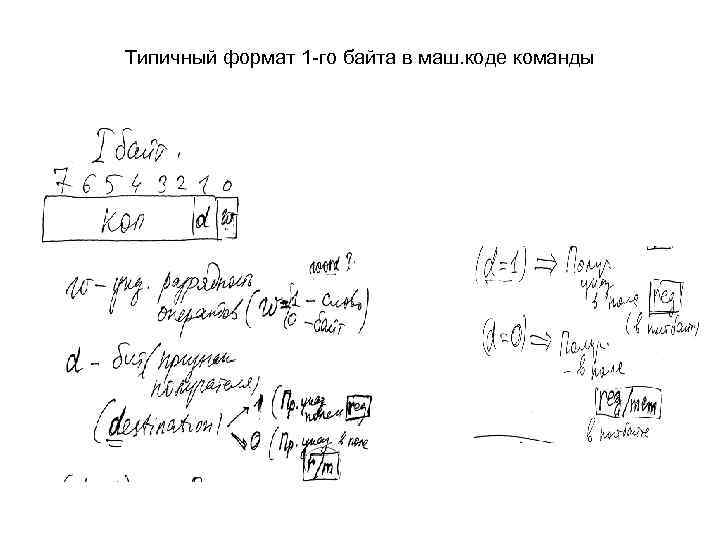 Типичный формат 1-го байта в маш.коде команды
I байт.
7 6 5 4 3 2 1 0
КОП d w
w - указ. разрядность
операндов (w = 1 - слово
0 - байт)
d - бит (признак
получателя)
(destination) 1 (Пр. указ
полем reg
0 (Пр. указ в поле
r/m
(d=1) ⇒ Получ.
указ
в поле reg
(в постбайте)
(d=0) ⇒ Получ
- в поле
reg/mem
в постбайте